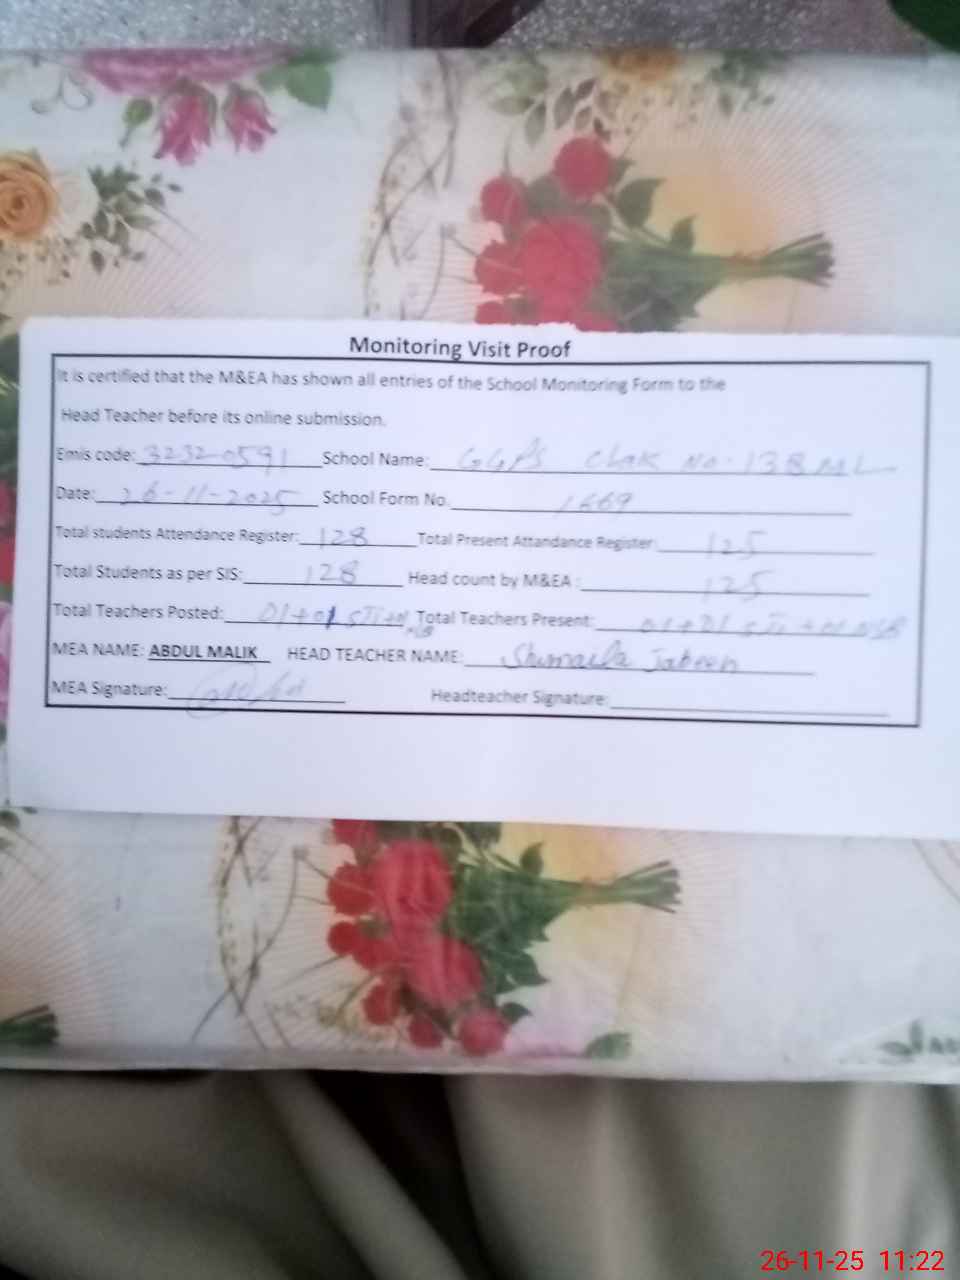 Monitoring Visit Proof
It is certified that the M&EA has shown all entries of the School Monitoring Form to the
Head Teacher before its online submission.
Emis code: 32320591 School Name: GGPS Chak No. 138 ML
Date: 26-11-2025 School Form No. 1669
Total students Attendance Register: 128 Total Present Attandance Register: 125
Total Students as per SIS: 128 Head count by M&EA : 125
Total Teachers Posted: 01+01 STI+01 Total Teachers Present: 01+01 STI +01 NSB
MEA NAME: ABDUL MALIK HEAD TEACHER NAME: Shumaila Jabeen
MEA Signature: Headteacher Signature:
26-11-25 11:22